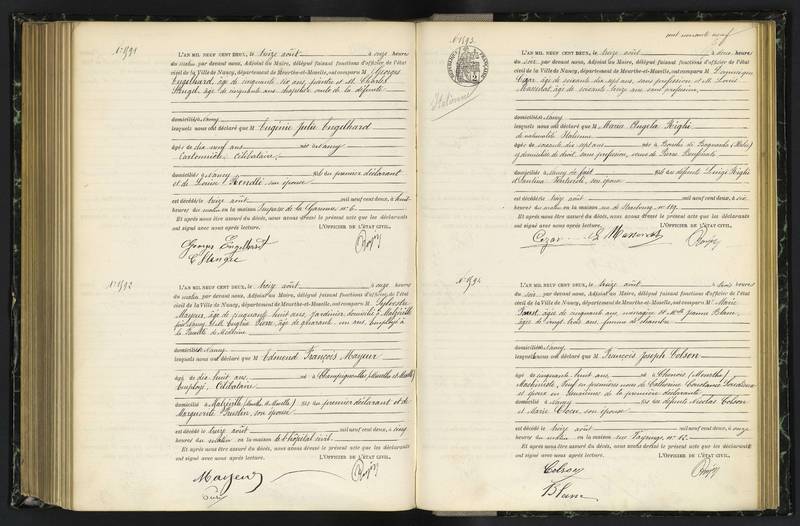 N° 1591
L'AN MIL NEUF CENT DEUX, le treize août à onze heures
du matin par devant nous, Adjoint au Maire, délégué faisant fonctions d'officier de l'état
civil de la Ville de Nancy, département de Meurthe-et-Moselle, ont comparu M Georges
Engelhard, âgé de cinquante six ans, peintre et M. Charles
âgé de cinquante ans, de la défunte
domiciliés à Nancy
lesquels nous ont déclaré que M Eugénie Julie Engelhard
âgée de dix neuf ans née à Nancy
Cartonnière, Célibataire
domiciliée à Nancy fille du premier déclarant
et de Louise son épouse
est décédée le treize août mil neuf cent deux, à huit
heures du matin en la maison Impasse de la Garenne n° 6
Et après nous être assuré du décès, nous avons dressé le présent acte que les déclarants
ont signé avec nous après lecture. L'OFFICIER DE L'ÉTAT CIVIL,
Georges Engelhard
N° 1592
L'AN MIL NEUF CENT DEUX, le treize août à onze heures
du matin, par devant nous, Adjoint au Maire, délégué faisant fonctions d'officier de l'état
civil de la Ville de Nancy, département de Meurthe-et-Moselle, ont comparu M Sylvestre
Mayeur, âgé de cinquante huit ans, jardinier, domicilié à Malzéville
âgé de quarante un ans, employé à
la Faculté de Médecine
domiciliés à Nancy
lesquels nous ont déclaré que M Edmond François Mayeur
âgé de dix huit ans né à Champigneulles (Meurthe et Moselle)
employé, Célibataire
domicilié à Malzéville (Meurthe et Moselle) fils du premier déclarant et de
Marguerite son épouse
est décédé le treize août mil neuf cent deux, à cinq
heures du matin en la maison de l'hôpital civil
Et après nous être assuré du décès, nous avons dressé le présent acte que les déclarants
ont signé avec nous après lecture. L'OFFICIER DE L'ÉTAT CIVIL,
Mayeur
N° 1593
L'AN MIL NEUF CENT DEUX, le treize août à deux heures
du soir, par devant nous, Adjoint au Maire, délégué faisant fonctions d'officier de l'état
civil de la Ville de Nancy, département de Meurthe-et-Moselle, ont comparu M Dominique
âgé de soixante dix sept ans, sans profession, et M. Louis
Massenet, âgé de soixante treize ans sans profession,
Italienne
domiciliés à Nancy
lesquels nous ont déclaré que M Maria Angela Righi
de nationalité Italienne
âgée de soixante dix sept ans née à
domiciliée de droit, sans profession, veuve de Pierre
domiciliée à Nancy de fait fille de défunts Luigi Righi
son épouse
est décédée le treize août mil neuf cent deux, à six
heures du matin en la maison rue de Strasbourg n° 119
Et après nous être assuré du décès, nous avons dressé le présent acte que les déclarants
ont signé avec nous après lecture. L'OFFICIER DE L'ÉTAT CIVIL,
L Massenet
N° 1594
L'AN MIL NEUF CENT DEUX, le treize août à heures
du soir, par devant nous, Adjoint au Maire, délégué faisant fonctions d'officier de l'état
civil de la Ville de Nancy, département de Meurthe-et-Moselle, ont comparu M Marie
âgée de cinquante ans ménagère et Jeanne Blum,
âgée de vingt trois ans, femme de chambre
domiciliées à Nancy
lesquels nous ont déclaré que M François Joseph Colson
âgé de cinquante huit ans né à (Meurthe)
Machiniste, Veuf en premières noces de Catherine Constance
et époux en deuxièmes de la première déclarante
domicilié à Nancy fils de défunts Nicolas Colson
et Marie son épouse
est décédé le treize août mil neuf cent deux, à onze
heures du matin, en la maison rue
Et après nous être assuré du décès, nous avons dressé le présent acte que les déclarants
ont signé avec nous après lecture. L'OFFICIER DE L'ÉTAT CIVIL,
Colson
Blum